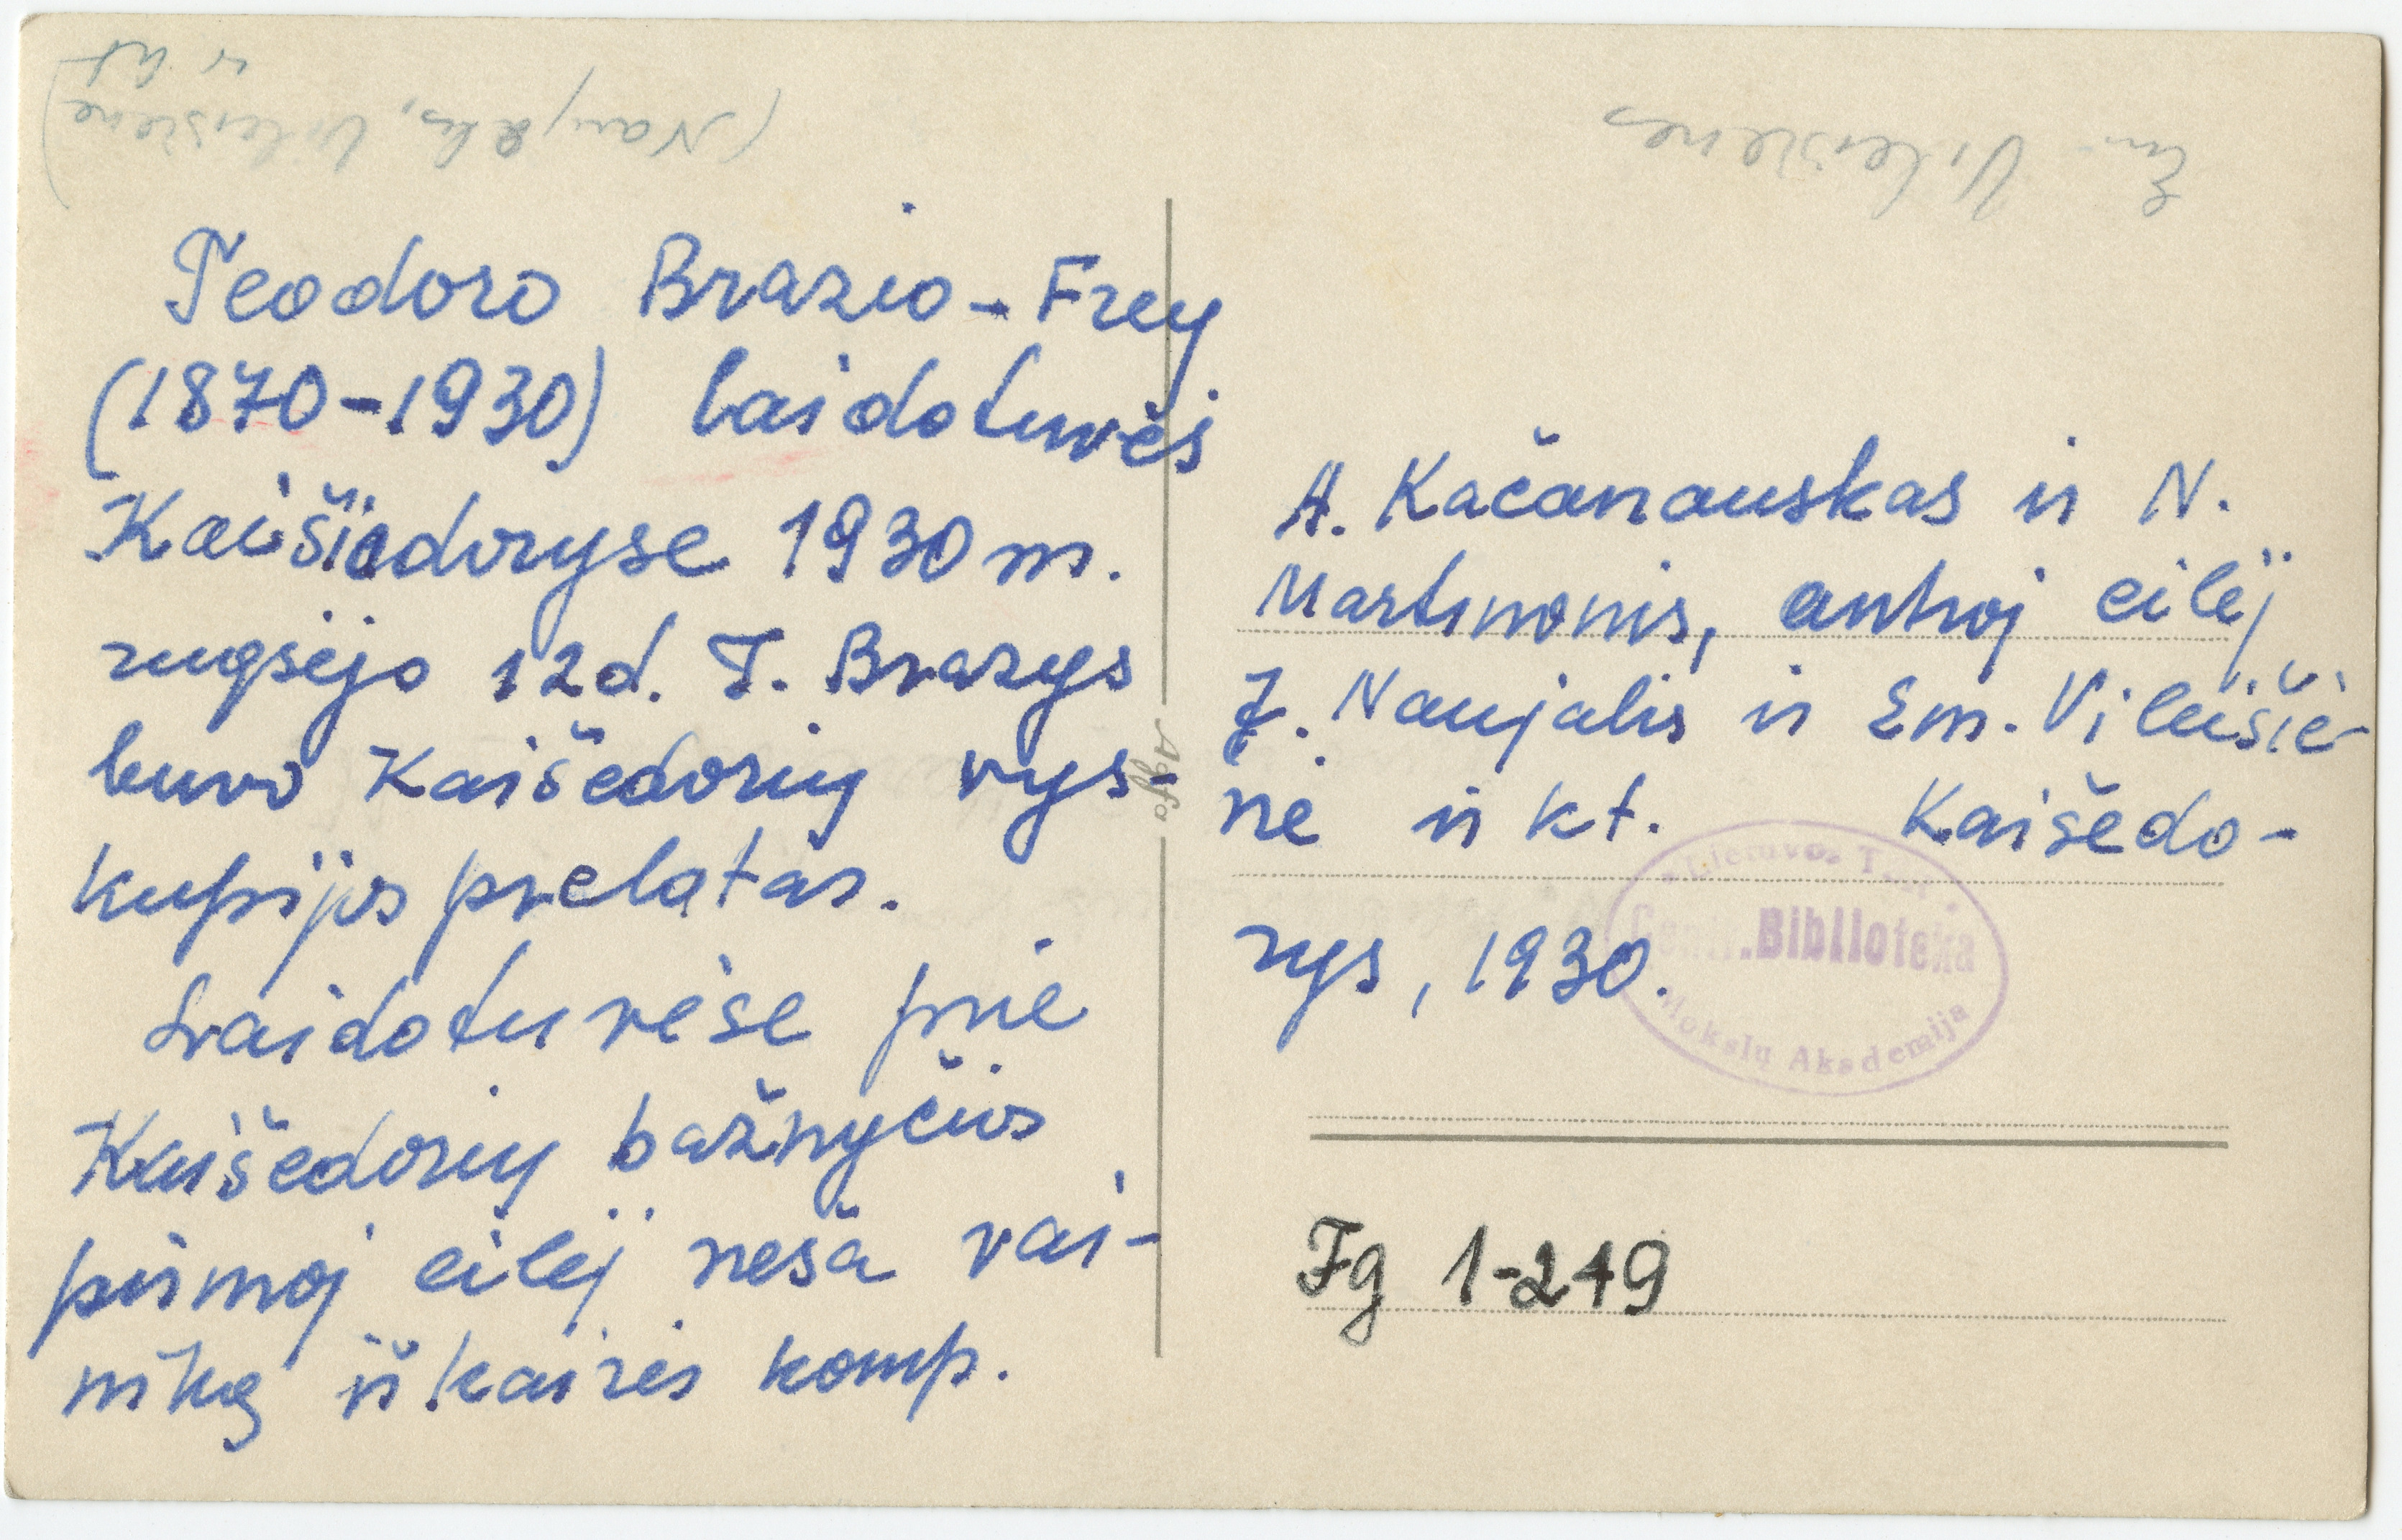 (Naujalis, Vileišienė
ir kt)
Em. Vileišienės
Teodoro Brazio-Frey
(1870-1930) laidotuvės
Kaišiadoryse 1930 m.
rugsėjo 12 d. T. Brazys
buvo Kaišedorių vys-
kupijos prelatas.
Laidotuvėse prie
Kaišedorių bažnyčios
pirmoj eilėj neša vai-
niką iš kairės komp.
A. Kačanauskas ir N.
Martinonis, antroj eilėj
J. Naujalis ir Em. Vileišie-
nė ir kt. Kaišedo-
rys, 1930.
Agfa
Lietuvos
Centr. Biblioteka
Mokslų Akademija
Fg 1-249